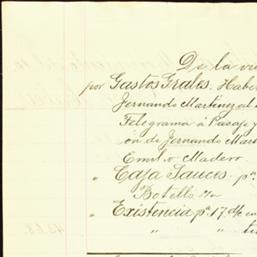 De la vu
por Gastos Grales. Haber
Fernando Martinez al
Telegrama á Parras y
ón de Fernando Mart
Emilio Madero
" Caja Sauces pa.
Botello s/c
" Existencia pa. 17 d/c en
" " ti